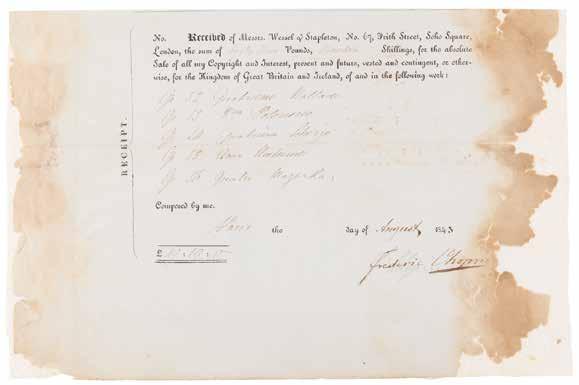 No. Received of Messrs. Wessel & Stapleton, No. 67, Frith Street, Soho Square,
London, the sum of Pounds, Shillings, for the absolute
Sale of all my Copyright and Interest, present and future, vested and contingent, or other-
wise, for the Kingdom of Great Britain and Ireland, of and in the following work:
Op 52 Quatrieme Ballade
Op 53 Polonaise
Op 54 Scherzo
Op
Op Mazurkas
Composed by me.
Paris the day of August, 1843
£
Frederic Chopin
RECEIPT.